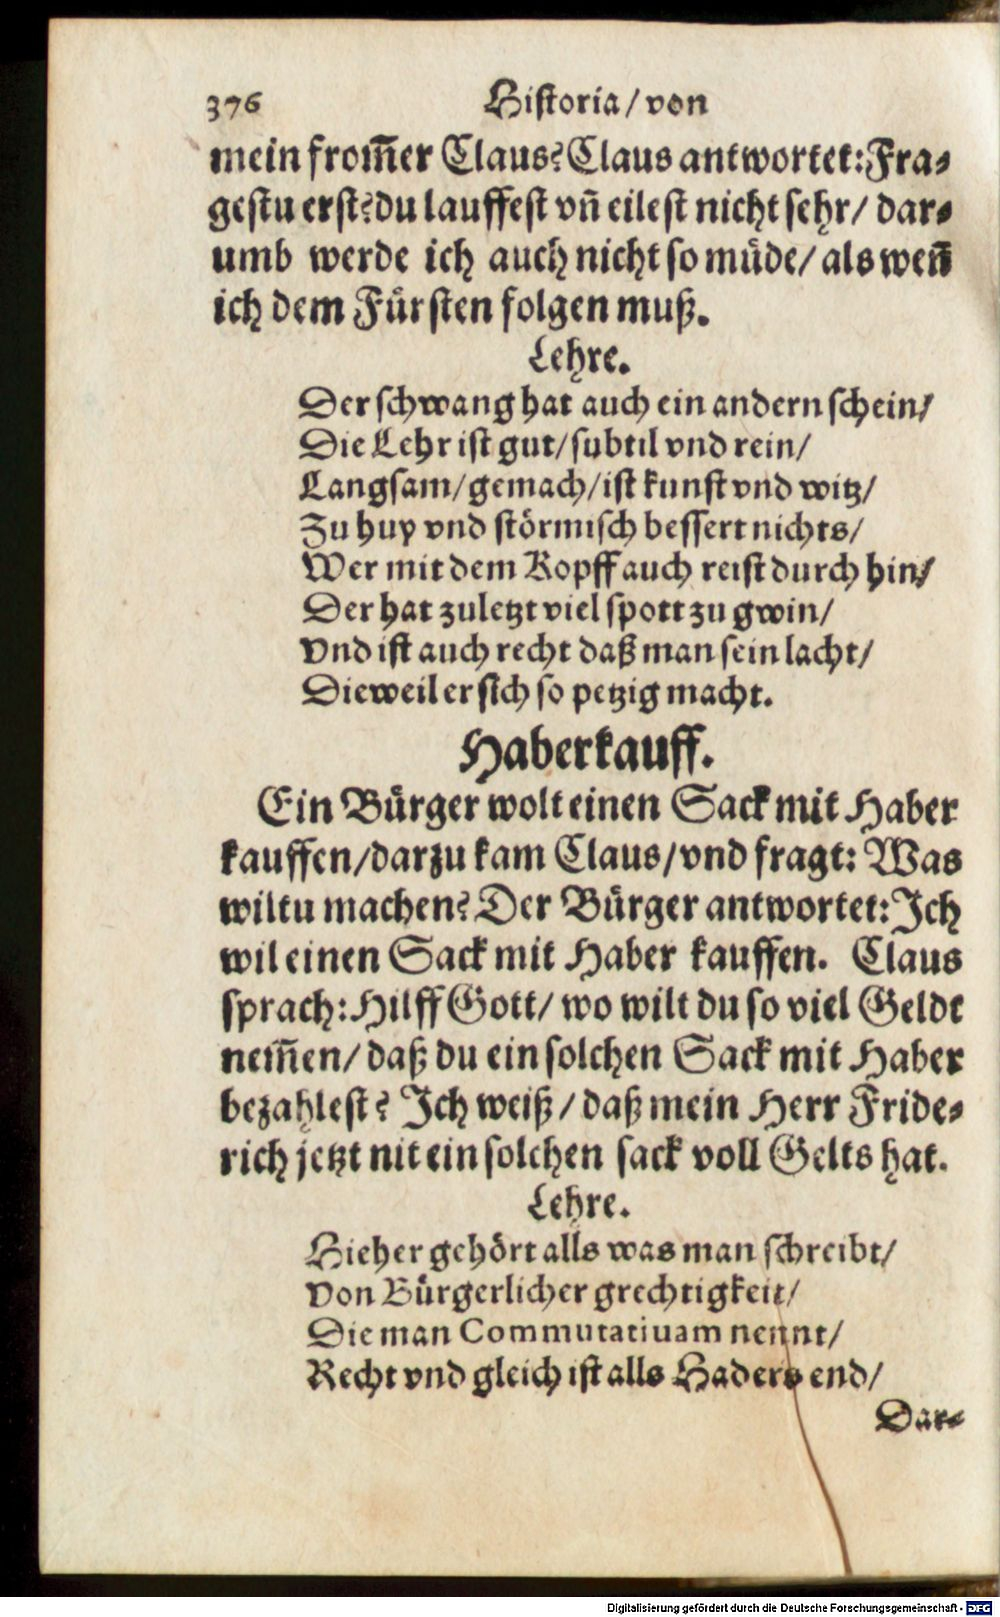 376 Historia/ von
mein from̃er Claus? Claus antwortet: Fra⸗
gestu erst? du lauffest vñ eilest nicht sehr/ dar⸗
umb werde ich auch nicht so müde/ als weñ
ich dem Fürsten folgen muß.
Lehre.
Der schwang hat auch ein andern schein/
Die Lehr ist gut/ subtil vnd rein/
Langsam/ gemach/ ist kunst vnd witz/
Zu huy vnd störmisch bessert nichts/
Wer mit dem Kopff auch reist durch hin/
Der hat zuletzt viel spott zu gwin/
Vnd ist auch recht daß man sein lacht/
Dieweil er sich so petzig macht.
Haberkauff.
Ein Bürger wolt einen Sack mit Haber
kauffen/ darzu kam Claus/ vnd fragt: Was
wiltu machen? Der Bürger antwortet: Ich
wil einen Sack mit Haber kauffen. Claus
sprach: Hilff Gott/ wo wilt du so viel Geldt
nem̃en/ daß du ein solchen Sack mit Haber
bezahlest? Ich weiß/ daß mein Herr Fride⸗
rich jetzt nit ein solchen sack voll Gelts hat.
Lehre.
Hieher gehört alls was man schreibt/
Von Bürgerlicher grechtigkeit/
Die man Commutatiuam nennt/
Recht vnd gleich ist alls Haders end/
Dar⸗
Digitalisierung gefördert durch die Deutsche Forschungsgemeinschaft - DFG